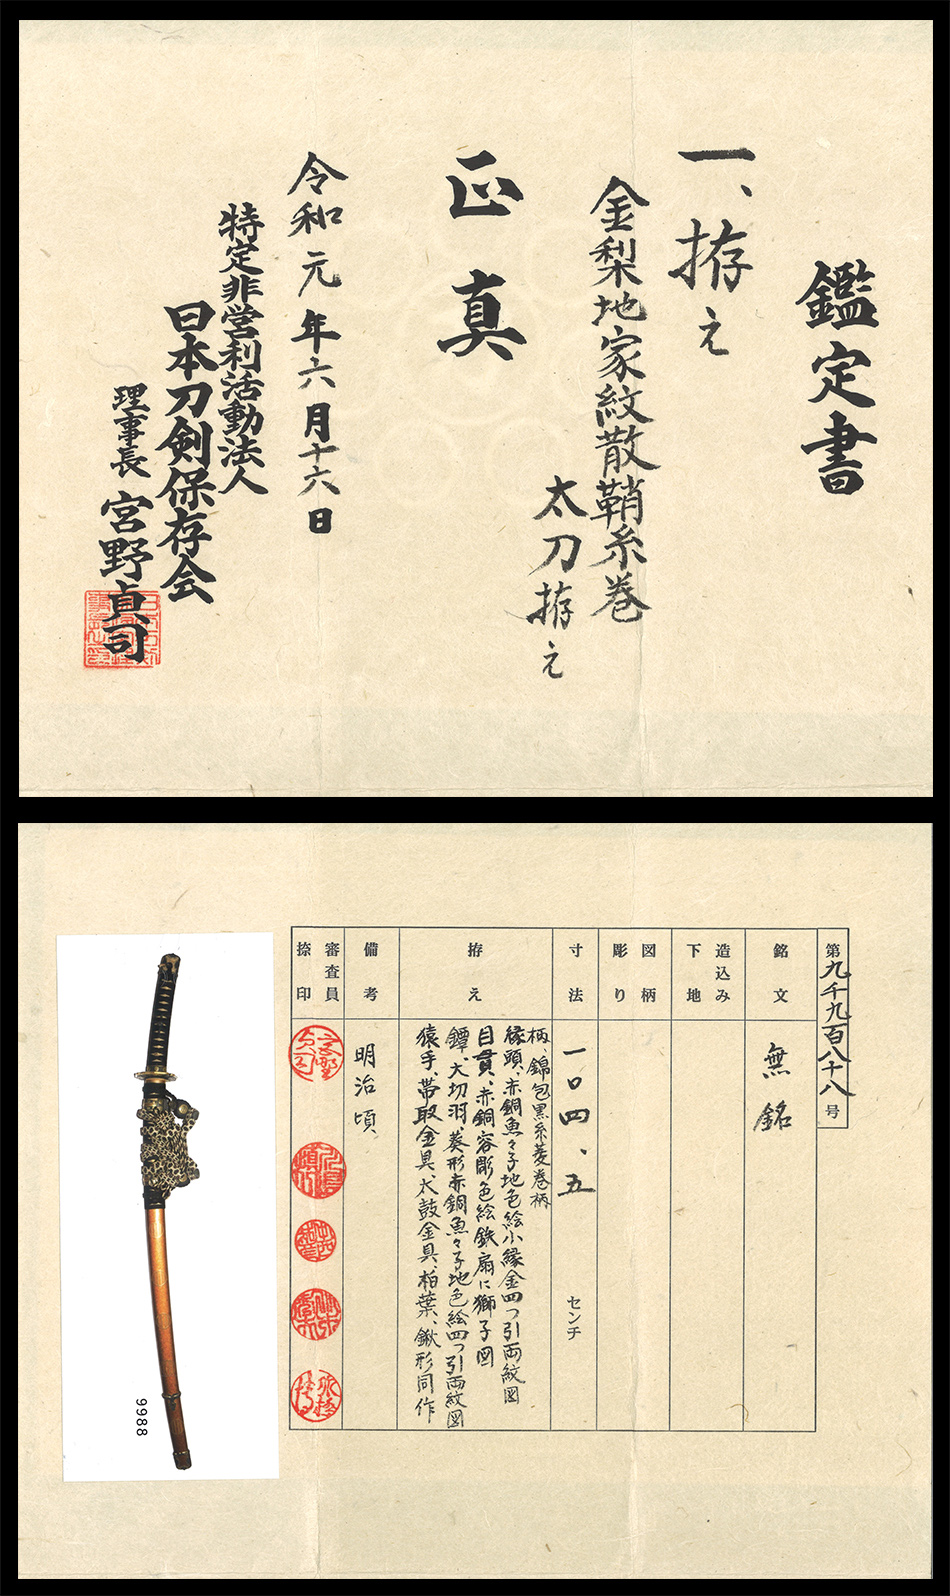 鑑定書
一、拵え
金梨地家紋散鞘糸巻
太刀拵え
正真
令和元年六月十六日
特定非営利活動法人
日本刀剣保存会
理事長 宮野貞司
第九千九百八十八号
銘文
無銘
造込み
下地
図柄
彫り
寸法
一〇四、五 センチ
拵え
柄、錦包黒糸菱巻柄
縁頭、赤銅魚々子地色絵小縁金四つ引両紋図
目貫、赤銅容彫色絵鉄扇に獅子図
鐔、大切羽、葵形赤銅魚々子地色絵四つ引両紋図
猿手、帯取金具、太鼓金具、柏葉、鍬形同作
備考
明治頃
審査員
捺印
9988